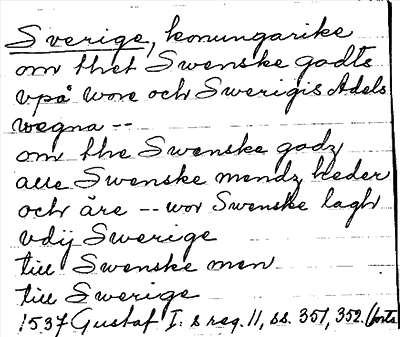 Sverige, konungarike
om thet Swenske godts
vpå wore och Swerigis Adels
wegna --
om the Swenske godz
alle Swenske mendz heder
och äre -- wor Swenske lagh
vdij Swerige
till Swenske men
till Swerige
1537 Gustaf I. s reg. 11, ss. 351, 352. (forts